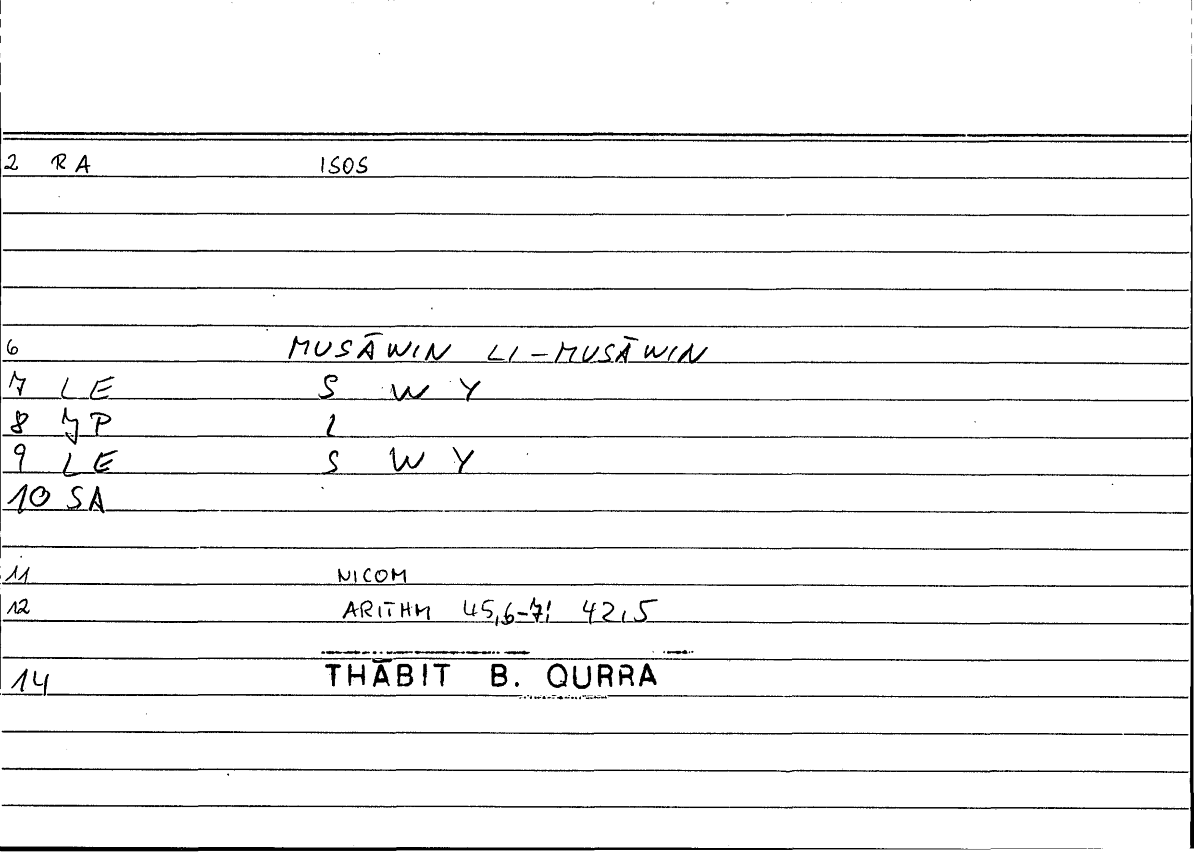 2 RA ISOS
6 MUSĀWIN LI-MUSĀWIN
7 LE S W Y
8 JP L
9 LE S W Y
10 SA
11 NICOM
12 ARITHM 45,6-7; 42,5
14 THĀBIT B. QURRA